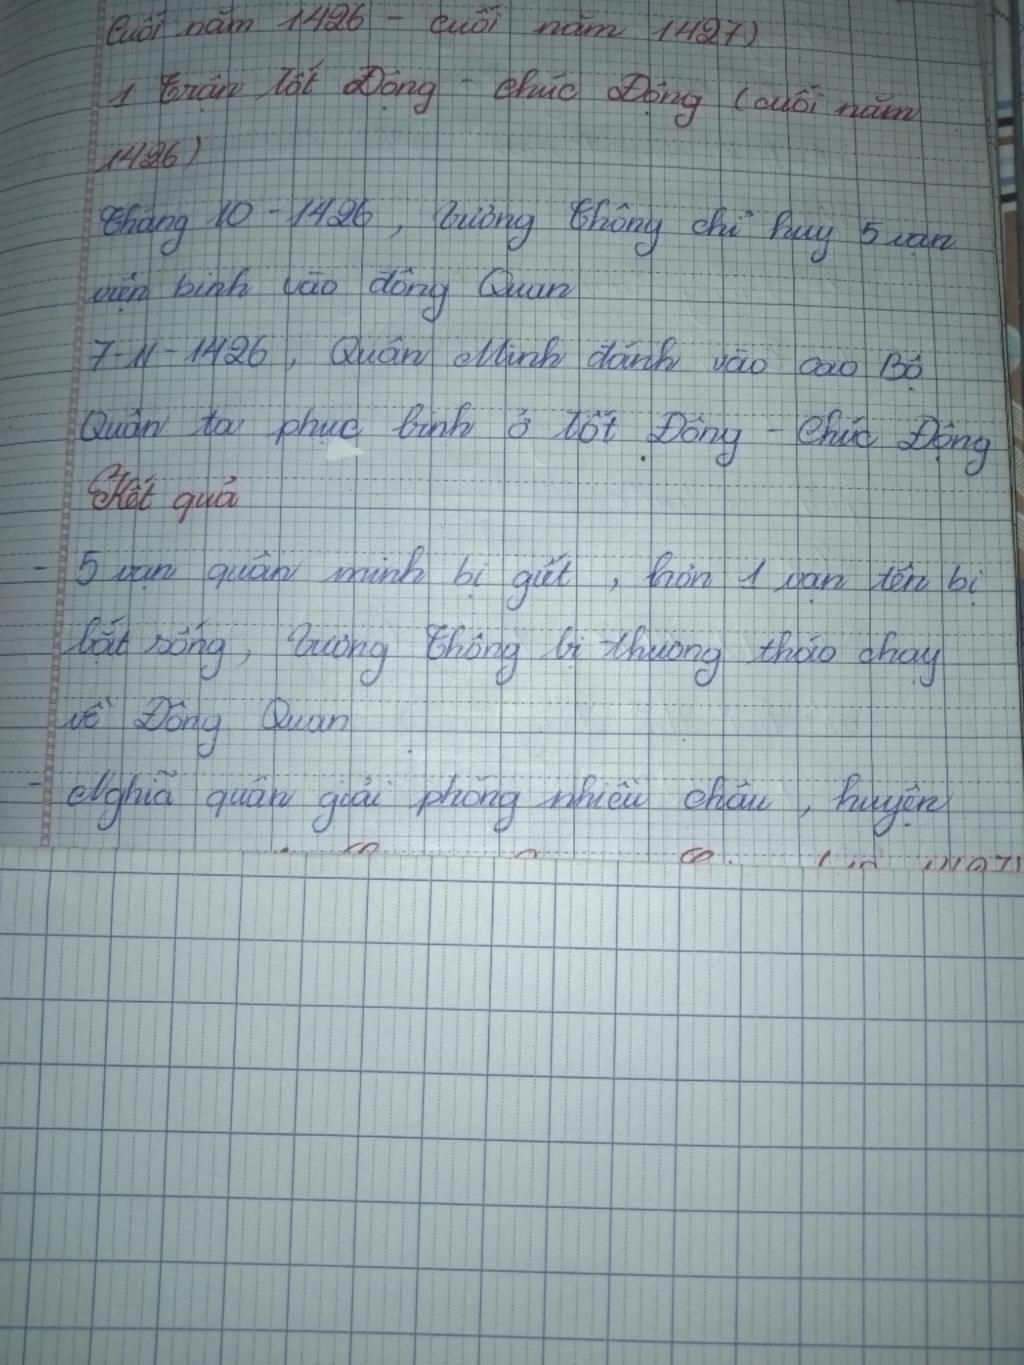 Cuối năm 1426 - cuối năm 1427)
1 Trận Tốt Động - chúc Động (cuối năm
1426)
Tháng 10 - 1426, Vương Thông chỉ huy 5 vạn
viện binh vào đông Quan
7-11-1426, Quân Minh đánh vào cao Bộ
Quân ta phục binh ở Tốt Động - Chúc Động
Kết quả
- 5 vạn quân minh bị giết, hơn 1 vạn tên bị
bắt sống, Vương Thông bị thương tháo chạy
về Đông Quan
- Nghĩa quân giải phóng nhiều châu, huyện